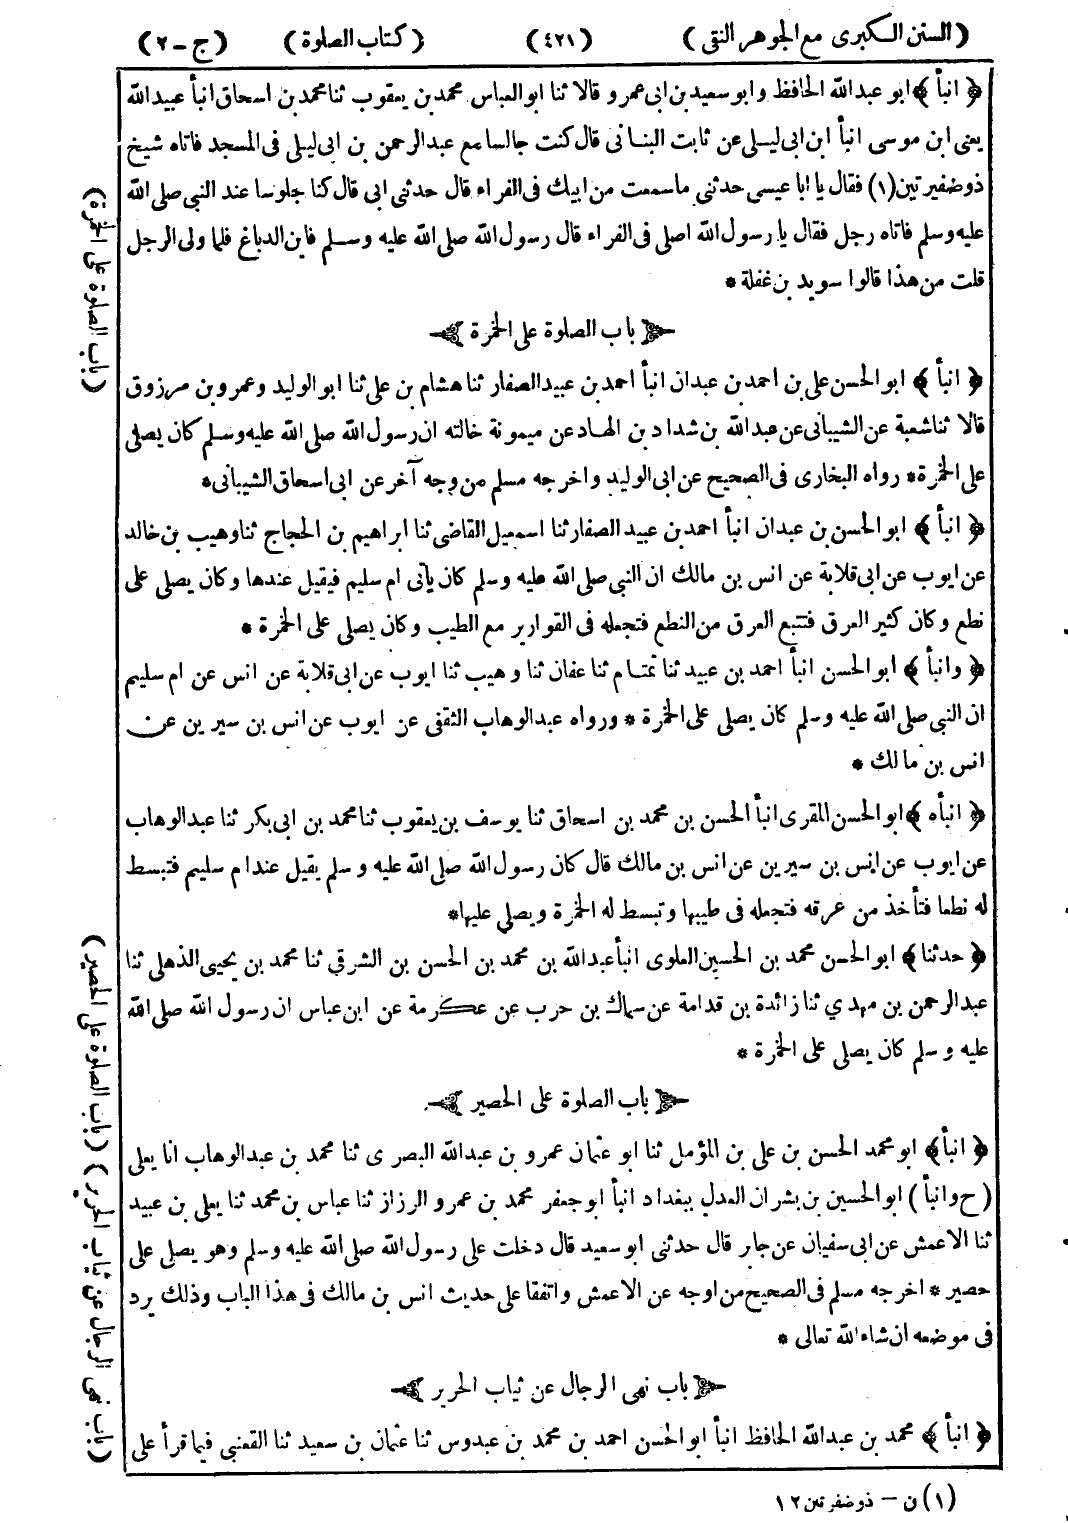 (السنن الكبرى مع الجوهر النقى) (٤٢١) (كتاب الصلوة) (ج-٢)
﴿ انبأ ﴾ ابو عبدالله الحافظ وابو سعيد بن ابى عمرو قالا ثنا ابو العباس محمد بن يعقوب ثنا محمد بن اسحاق انبأ عبيد الله
يعنى ابن موسى انبأ ابن ابى ليلى عن ثابت البنانى قال كنت جالسا مع عبدالرحمن بن ابى ليلى فى المسجد فاتاه شيخ
ذو ضفيرتين(١) فقال يا ابا عيسى حدثنى ما سمعت من ابيك فى الفراء قال حدثنى ابى قال كنا جلوسا عند النبي صلى الله
عليه وسلم فاتاه رجل فقال يا رسول الله اصلى فى الفراء قال رسول الله صلى الله عليه وسلم فاين الدباغ فلما ولى الرجل
قلت من هذا قالوا سويد بن غفلة *
﴿ باب الصلوة على الخمرة ﴾
﴿ انبأ ﴾ ابو الحسن على بن احمد بن عبدان انبأ احمد بن عبيد الصفار ثنا هشام بن على ثنا ابو الوليد وعمرو بن مرزوق
قالا ثنا شعبة عن الشيبانى عن عبدالله بن شداد بن الهاد عن ميمونة خالته ان رسول الله صلى الله عليه وسلم كان يصلى
على الخمرة* رواه البخارى فى الصحيح عن ابى الوليد واخرجه مسلم من وجه آخر عن ابى اسحاق الشيبانى*
﴿ انبأ ﴾ ابو الحسن بن عبدان انبأ احمد بن عبيد الصفار ثنا اسمعيل القاضى ثنا ابراهيم بن الحجاج ثنا وهيب بن خالد
عن ايوب عن ابى قلابة عن انس بن مالك ان النبى صلى الله عليه وسلم كان يأتى ام سليم فيقيل عندها وكان يصلى على
نطع وكان كثير العرق فتتبع العرق من النطع فتجعله فى القوارير مع الطيب وكان يصلى على الخمرة *
﴿ وانبأ ﴾ ابو الحسن انبأ احمد بن عبيد ثنا تمتام ثنا عفان ثنا وهيب ثنا ايوب عن ابى قلابة عن انس عن ام سليم
ان النبى صلى الله عليه وسلم كان يصلى على الخمرة * ورواه عبدالوهاب الثقفى عن ايوب عن انس بن سيرين عن
انس بن مالك *
﴿ انبأه ﴾ ابو الحسن المقرى انبأ الحسن بن محمد بن اسحاق ثنا يوسف بن يعقوب ثنا محمد بن ابى بكر ثنا عبدالوهاب
عن ايوب عن انس بن سيرين عن انس بن مالك قال كان رسول الله صلى الله عليه وسلم يقيل عند ام سليم فتبسط
له نطعا فتأخذ من عرقه فتجعله فى طيبها وتبسط له الخمرة ويصلي عليها*
﴿ حدثنا ﴾ ابو الحسن محمد بن الحسين العلوى انبأ عبدالله بن محمد بن الحسن بن الشرقي ثنا محمد بن يحيى الذهلى ثنا
عبدالرحمن بن مهدي ثنا زائدة بن قدامة عن سماك بن حرب عن عكرمة عن ابن عباس ان رسول الله صلى الله
عليه وسلم كان يصلى على الخمرة *
﴿ باب الصلوة على الحصير ﴾
﴿ انبأ ﴾ ابو محمد الحسن بن على بن المؤمل ثنا ابو عثمان عمرو بن عبدالله البصرى ثنا محمد بن عبدالوهاب انا يعلى
(ح وانبأ) ابو الحسين بن بشران العدل ببغداد انبأ ابو جعفر محمد بن عمرو الرزاز ثنا عباس بن محمد ثنا يعلى بن عبيد
ثنا الاعمش عن ابى سفيان عن جابر قال حدثنى ابو سعيد قال دخلت على رسول الله صلى الله عليه وسلم وهو يصلى على
حصير * اخرجه مسلم فى الصحيح من اوجه عن الاعمش واتفقا على حديث انس بن مالك فى هذا الباب وذلك يرد
فى موضعه ان شاء الله تعالى *
﴿ باب نهى الرجال عن ثياب الحرير ﴾
﴿ انبأ ﴾ محمد بن عبدالله الحافظ انبأ ابو الحسن احمد بن محمد بن عبدوس ثنا عثمان بن سعيد ثنا القعنبى فيما قرأ على
(١) ن - ذو ضفرتين ١٢
(باب الصلوة على الخمرة)
(باب الصلوة على الحصير)
(باب نهى الرجال عن ثياب الحرير)